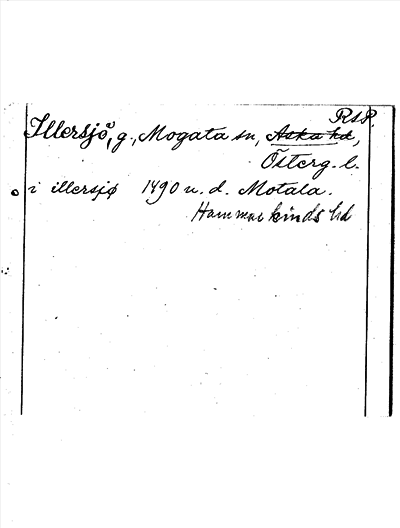 RSP.
Illersjö, g., Mogata sn, Aska hd,
Österg. l.
i illersjø 1490 u. d. Motala.
Hammarkinds hd